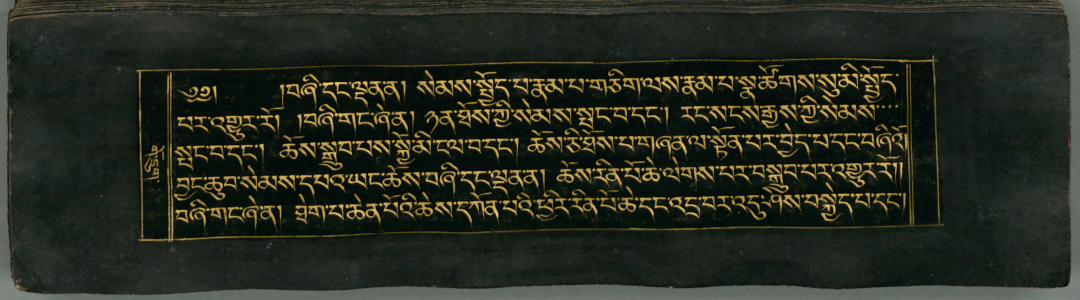 ༄༅། །བཞི་དང་ལྡནན། སེམས་སྤྱོད་པ་རྣམ་པ་གཅིག་ལས་རྣམ་པ་སྣ་ཚོགས་སུ་མི་སྤྱོད་
པར་འགྱུར་རོ། །བཞི་གང་ཞེ་ན། ཉན་ཐོས་ཀྱི་སེམས་སྤང་བ་དང་། རང་སངས་རྒྱས་ཀྱི་སེམས་
སྤང་བ་དང་། ཆོས་སྒྲུབ་པས་སྐྱོ་མི་ངལ་བ་དང་། ཆོས་ཅི་ཐོས་པ་གཞན་ལ་སྟོན་པར་བྱེད་པ་དང་བཞིའོ།
བྱང་ཆུབ་སེམས་དཔའ་ཡང་ཆོས་བཞི་དང་ལྡནན། ཆོས་རིན་པོ་ཆེ་ལེགས་པར་བསྒྲུབ་པར་འགྱུར་རོ།།
བཞི་གང་ཞེ་ན། ཐེག་པ་ཆེན་པོའི་ཆོས་དཀོན་པའི་ཕྱིར་རིན་པོ་ཆེ་དང་འདྲ་བར་འདུ་ཤེས་བསྐྱེད་པ་དང་།